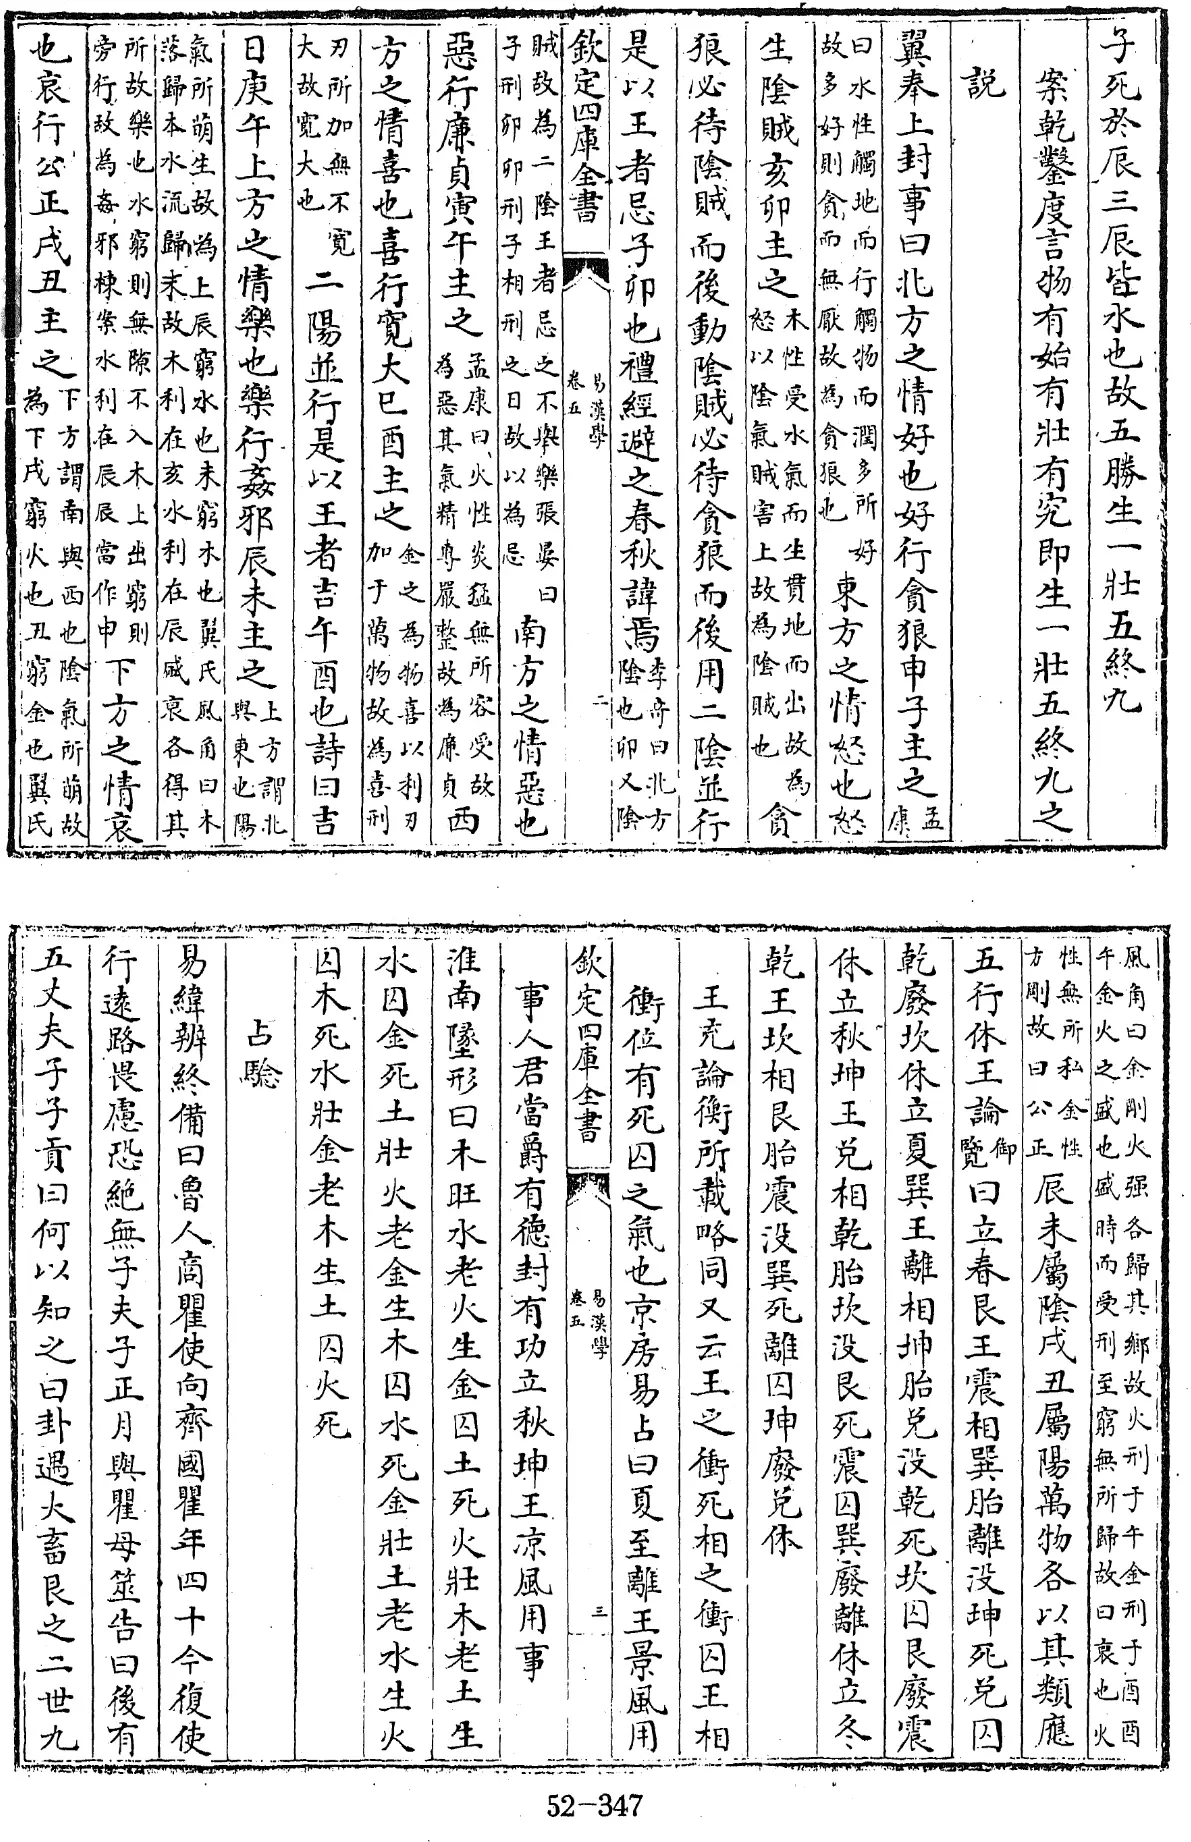 子死於辰三辰皆水也故五勝生一壯五終九
案乾鑿度言物有始有壯有究即生一壯五終九之
說
翼奉上封事曰北方之情好也好行貪狼申子主之孟康
曰水性觸地而行觸物而潤多所好
故多好則貪而無厭故為貪狼也
東方之情怒也怒
生陰賊亥卯主之
木性受水氣而生貫地而出故為
怒以陰氣賊害土故為陰賊也
貪
狼必待陰賊而後動陰賊必待貪狼而後用二陰並行
是以王者忌子卯也禮經避之春秋諱焉
李奇曰北方
陰也卯又陰
欽定四庫全書
易漢學
卷五
二
賊故為二陰王者忌之不舉樂張晏曰
子刑卯卯刑子相刑之日故以為忌
南方之情惡也
惡行廉貞寅午主之
孟康曰火性炎猛無所容受故
為惡其氣精專嚴整故為廉貞
西
方之情喜也喜行寬大巳酉主之
金之為物喜以利刃
加于萬物故為喜刑
刃所加無不寬
大故寬大也
二陽並行是以王者吉午酉也詩曰吉
日庚午上方之情樂也樂行姦邪辰未主之
上方謂北
與東也陽
氣所萌生故為上辰窮水也未窮木也翼氏風角曰木
落歸本水流歸末故木利在亥水利在辰盛衰各得其
所故樂也水窮則無隙不入木上出窮則
旁行故為姦邪棟案水利在辰辰當作申
下方之情哀
也哀行公正戌丑主之
下方謂南與西也陰氣所萌故
為下戌窮火也丑窮金也翼氏
風角曰金剛火强各歸其鄉故火刑于午金刑于酉酉
午金火之盛也盛時而受刑至窮無所歸故曰哀也火
性無所私金性
方剛故曰公正
辰未屬陰戌丑屬陽萬物各以其類應
五行休王論御覽曰立春艮王震相巽胎離沒坤死兌囚
乾廢坎休立夏巽王離相坤胎兌沒乾死坎囚艮廢震
休立秋坤王兌相乾胎坎沒艮死震囚巽廢離休立冬
乾王坎相艮胎震沒巽死離囚坤廢兌休
王充論衡所載略同又云王之衝死相之衝囚王相
衝位有死囚之氣也京房易占曰夏至離王景風用
欽定四庫全書
易漢學
卷五
三
事人君當爵有德封有功立秋坤王凉風用事
淮南墜形曰木旺水老火生金囚土死火壯木老土生
水囚金死土壯火老金生木囚水死金壯土老水生火
囚木死水壯金老木生土囚火死
占驗
易緯辨終備曰魯人商瞿使向齊國瞿年四十今復使
行遠路畏慮恐絕無子夫子正月與瞿母筮告曰後有
五丈夫子子貢曰何以知之曰卦遇大畜艮之二世九
52-347